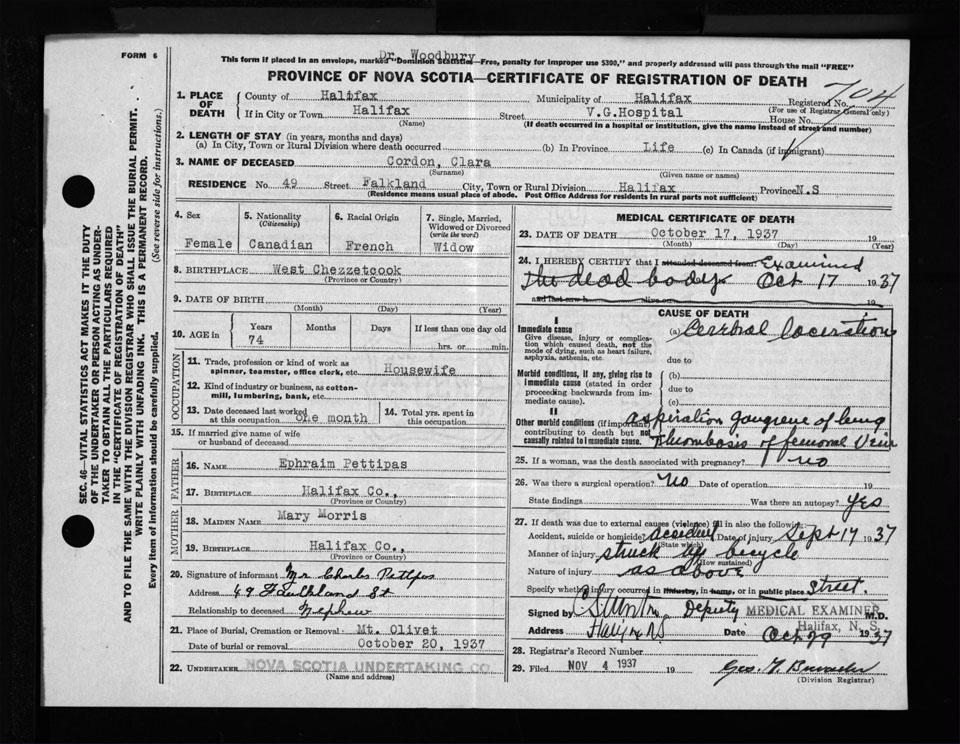 FORM 6
Dr. Woodbury
This form if placed in an envelope, marked "Dominion Statistics—Free, penalty for improper use $300," and properly addressed will pass through the mail "FREE"
PROVINCE OF NOVA SCOTIA—CERTIFICATE OF REGISTRATION OF DEATH
704
1. PLACE OF DEATH
County of Halifax Municipality of Halifax Registered No.
(For use of Registrar General only)
If in City or Town Halifax Street V.G.Hospital House No.
(Name) (If death occurred in a hospital or institution, give the name instead of street and number)
2. LENGTH OF STAY (in years, months and days)
(a) In City, Town or Rural Division where death occurred (b) In Province Life (c) In Canada (if immigrant)
3. NAME OF DECEASED Cordon, Clara
(Surname) (Given name or names)
RESIDENCE No. 49 Street Falkland City, Town or Rural Division Halifax Province N.S
(Residence means usual place of abode. Post Office Address for residents in rural parts not sufficient)
4. Sex Female
5. Nationality (Citizenship) Canadian
6. Racial Origin French
7. Single, Married, Widowed or Divorced (write the word) Widow
8. BIRTHPLACE West Chezzetcook
(Province or Country)
9. DATE OF BIRTH
(Month) (Day) (Year)
10. AGE in Years Months Days If less than one day old
74 hrs. or min.
OCCUPATION
11. Trade, profession or kind of work as spinner, teamster, office clerk, etc. Housewife
12. Kind of industry or business, as cotton-mill, lumbering, bank, etc.
13. Date deceased last worked at this occupation one month
14. Total yrs. spent in this occupation
15. If married give name of wife or husband of deceased
FATHER
16. NAME Ephraim Pettipas
17. BIRTHPLACE Halifax Co.,
(Province or Country)
MOTHER
18. MAIDEN NAME Mary Morris
19. BIRTHPLACE Halifax Co.,
(Province or Country)
20. Signature of informant Mr Charles Pettipas
Address 49 Faulkland St
Relationship to deceased Nephew
21. Place of Burial, Cremation or Removal Mt. Olivet
Date of burial or removal October 20, 1937
22. UNDERTAKER NOVA SCOTIA UNDERTAKING CO.
(Name and address)
MEDICAL CERTIFICATE OF DEATH
23. DATE OF DEATH October 17, 1937 19
(Month) (Day) (Year)
24. I HEREBY CERTIFY that I attended deceased from Examined
the dead body Oct 17 1937
and last saw h alive on 19
CAUSE OF DEATH
I
Immediate cause
Give disease, injury or complication which caused death, not the mode of dying, such as heart failure, asphyxia, asthenia, etc.
(a) Cerebral laceration
due to
Morbid conditions, if any, giving rise to Immediate cause (stated in order proceeding backwards from immediate cause).
(b)
due to
(c)
II
Other morbid conditions (if important) contributing to death but not causally related to immediate cause.
aspiration gangrene of lung
Thrombosis of femoral Vein
25. If a woman, was the death associated with pregnancy? no
26. Was there a surgical operation? No Date of operation 19
State findings Was there an autopsy? Yes
27. If death was due to external causes (violence) fill in also the following:
Accident, suicide or homicide? accident Date of injury Sept 17 1937
(State which)
Manner of injury struck by bicycle
(How sustained)
Nature of injury as above
Specify whether injury occurred in industry, in home, or in public place street.
Signed by Deputy MEDICAL EXAMINER M.D.
Halifax, N. S.
Address Halifax NS Date Oct 29 1937
28. Registrar's Record Number
29. Filed NOV 4 1937 19
(Division Registrar)
SEC. 46—VITAL STATISTICS ACT MAKES IT THE DUTY
OF THE UNDERTAKER OR PERSON ACTING AS UNDER-
TAKER TO OBTAIN ALL THE PARTICULARS REQUIRED
IN THE "CERTIFICATE OF REGISTRATION OF DEATH"
AND TO FILE THE SAME WITH THE DIVISION REGISTRAR WHO SHALL ISSUE THE BURIAL PERMIT.
WRITE PLAINLY WITH UNFADING INK. THIS IS A PERMANENT RECORD.
Every item of information should be carefully supplied. (See reverse side for instructions.)